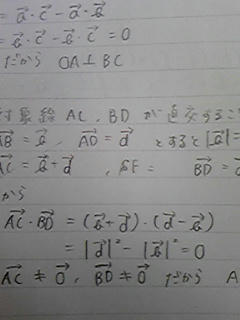 = a⃗・c⃗ − a⃗・b⃗
= b⃗・c⃗ − b⃗・c⃗ = 0
だから OA⊥BC
対角線 AC, BD が直交する
AB⃗ = b⃗, AD⃗ = d⃗ とすると |b⃗| =
AC⃗ = b⃗ + d⃗, BD⃗ = d⃗
から
AC⃗・BD⃗ = (b⃗ + d⃗)・(d⃗ − b⃗)
= |d⃗|² − |b⃗|² = 0
AC⃗ ≠ 0⃗, BD⃗ ≠ 0⃗ だから A